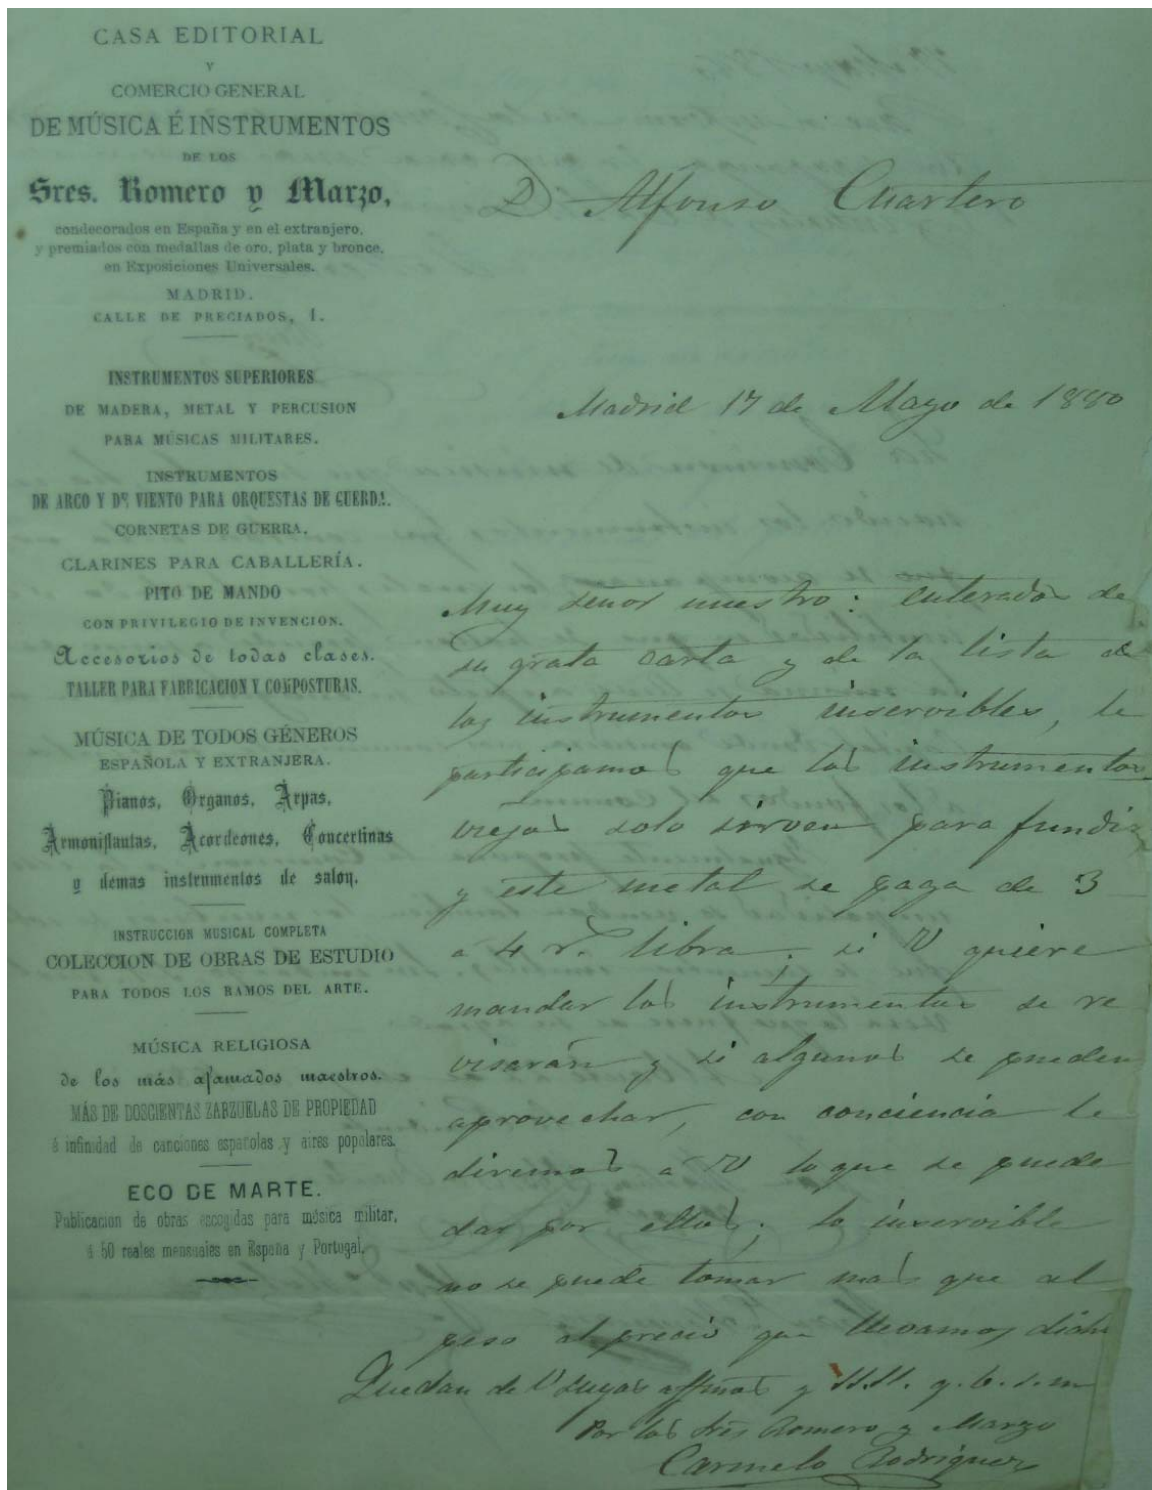 CASA EDITORIAL
Y
COMERCIO GENERAL
DE MÚSICA É INSTRUMENTOS
DE LOS
Sres. Romero y Marzo,
condecorados en España y en el extranjero,
y premiados con medallas de oro, plata y bronce,
en Exposiciones Universales.
MADRID.
CALLE DE PRECIADOS, 1.
INSTRUMENTOS SUPERIORES
DE MADERA, METAL Y PERCUSION
PARA MÚSICAS MILITARES.
INSTRUMENTOS
DE ARCO Y DE VIENTO PARA ORQUESTAS DE CUERDA.
CORNETAS DE GUERRA.
CLARINES PARA CABALLERÍA.
PITO DE MANDO
CON PRIVILEGIO DE INVENCION.
Accesorios de todas clases.
TALLER PARA FABRICACION Y COMPOSTURAS.
MÚSICA DE TODOS GÉNEROS
ESPAÑOLA Y EXTRANJERA.
Pianos, Organos, Arpas,
Armoniflautas, Acordeones, Concertinas
y demas instrumentos de salon.
INSTRUCCION MUSICAL COMPLETA
COLECCION DE OBRAS DE ESTUDIO
PARA TODOS LOS RAMOS DEL ARTE.
MÚSICA RELIGIOSA
de los más afamados maestros.
MÁS DE DOSCIENTAS ZARZUELAS DE PROPIEDAD
é infinidad de canciones españolas y aires populares.
ECO DE MARTE.
Publicacion de obras escogidas para música militar,
á 50 reales mensuales en España y Portugal.
D Alfonso Cuartero
Madrid 17 de Mayo de 1880
Muy señor nuestro: enterados de
su grata carta y de la lista de
los instrumentos inservibles, le
participamos que los instrumentos
viejos solo sirven para fundir
y este metal se paga de 3
a 4 r.s libra; si V quiere
mandar los instrumentos se re
visarán y si algunos se pueden
aprovechar, con conciencia le
diremos a V lo que se puede
dar por ellos; lo inservible
no se puede tomar mas que al
peso al precio que llevamos dicho
Quedan de V suyos affmos y SS.SS. q.b.s.m
Por los Sres Romero y Marzo
Carmelo Rodriguez